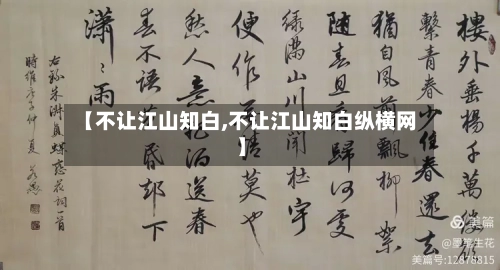 【不让江山知白,不让江山知白纵横网
】
樓外垂楊千萬縷
繫青春少住春還去
猶自風前飄柳絮
隨春且看歸何處
綠滿山川聞杜宇
便作無情莫也
愁人把酒送春
春不語黃昏却下
瀟々雨
右錄朱淑真蝶恋花詞一首
時維庚子仲夏
美篇
美篇号:12878815